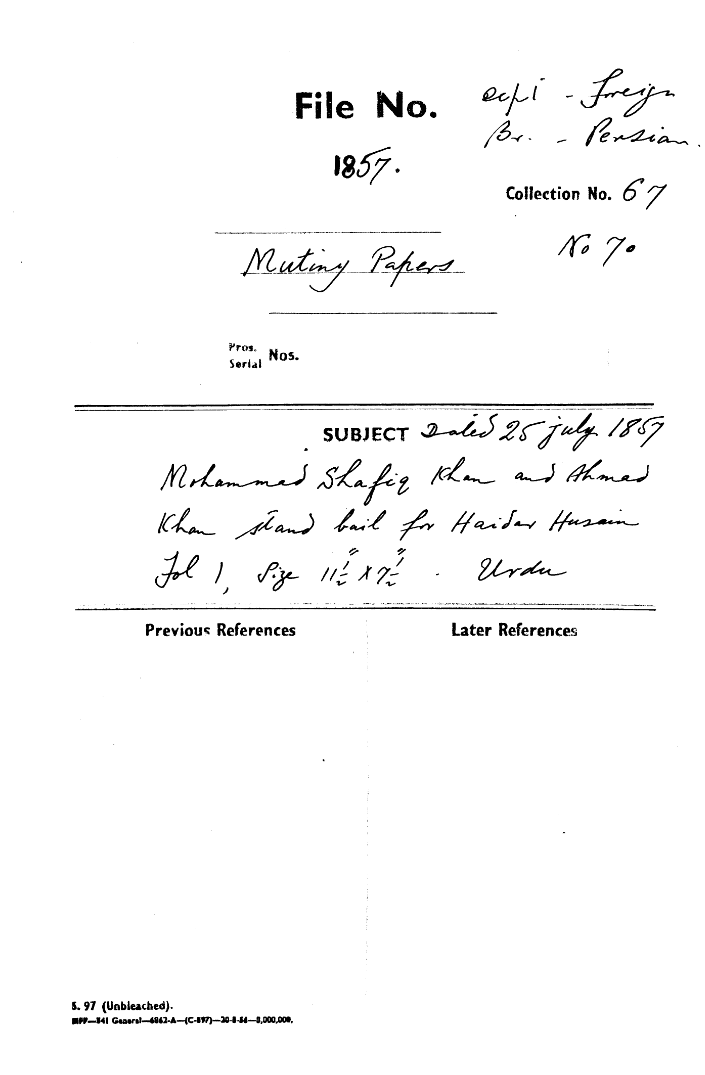 File No.
Dept - Foreign
Br. - Persian.
1857.
Collection No. 67
No 70
Mutiny Papers
Pros.
Serial Nos.
SUBJECT Dated 25 july 1857
Mohammed Shafiq Khan and Ahmad
Khan stand bail for Haidar Husain
Fol 1, Size 11½" X 7½" . Urdu
Previous References
Later References
S. 97 (Unbleached).
General—6862-A—(C-897)—20-8-54—5,000,000.